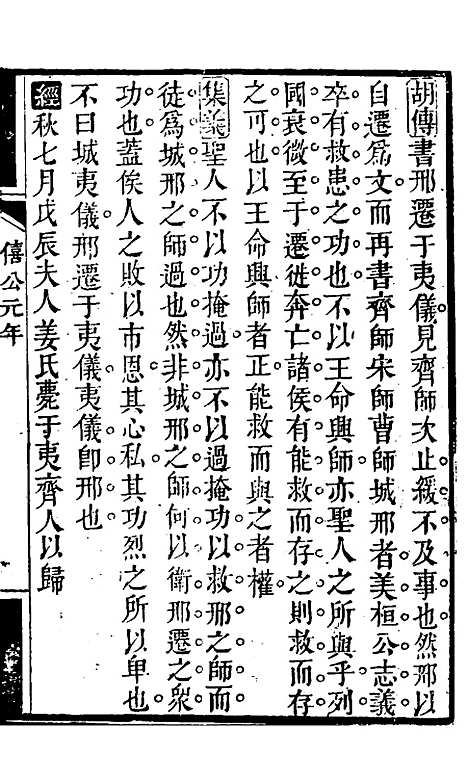 胡傳書邢遷于夷儀見齊師次止緩不及事也然邢以
自遷爲文而再書齊師宋師曹師城邢者美桓公志義
卒有救患之功也不以王命興師亦聖人之所與乎列
國衰微至于遷徙奔亡諸侯有能救而存之則救而存
之可也以王命興師者正能救而與之者權
集義聖人不以功掩過亦不以過掩功以救邢之師而
徒爲城邢之師過也然非城邢之師何以衛邢遷之衆
功也蓋俟人之敗以市恩其心私其功烈之所以卑也
不曰城夷儀邢遷于夷儀夷儀卽邢也
經秋七月戊辰夫人姜氏薨于夷齊人以歸
僖公元年